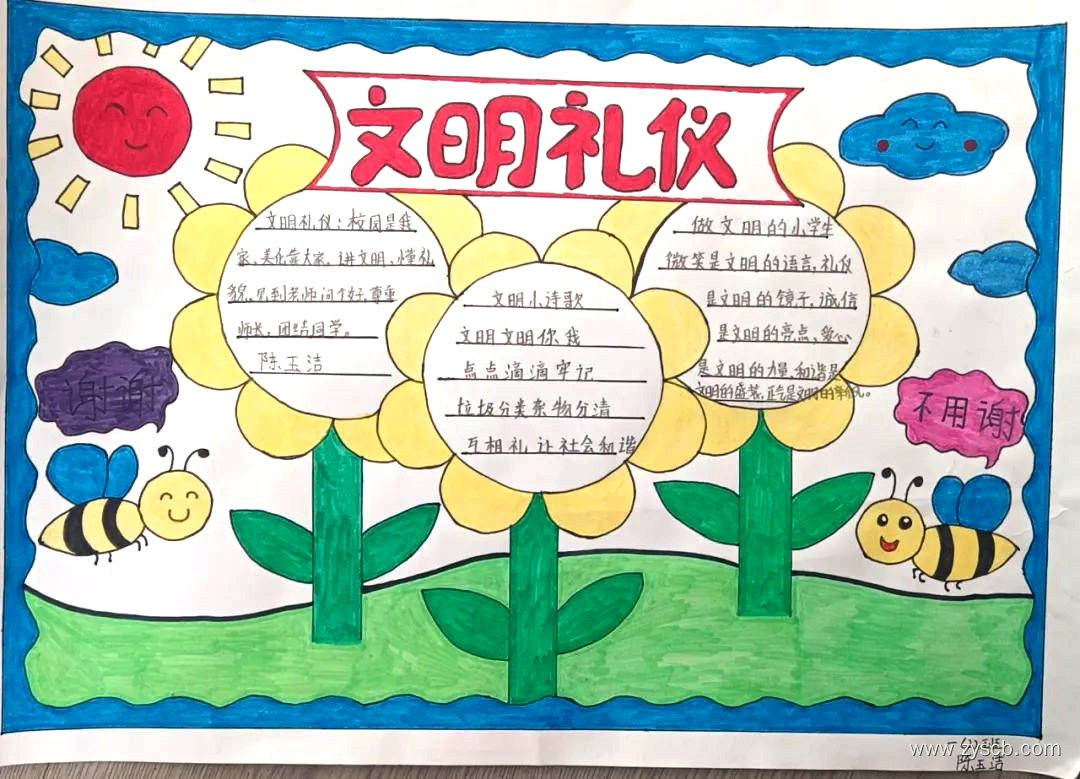 文明礼仪
文明礼仪：校园是我
家，美化靠大家，讲文明，懂礼
貌，见到老师问个好，尊重
师长，团结同学。
陈玉洁
文明小诗歌
文明文明你我
点点滴滴牢记
垃圾分类杂物分清
互相礼让社会和谐
做文明的小学生
微笑是文明的语言，礼仪
是文明的镜子，诚信
是文明的亮点，爱心
是文明的力量，和谐是
文明的盛装，正气是文明的
谢谢
不用谢
陈玉洁
www.zyscb.com